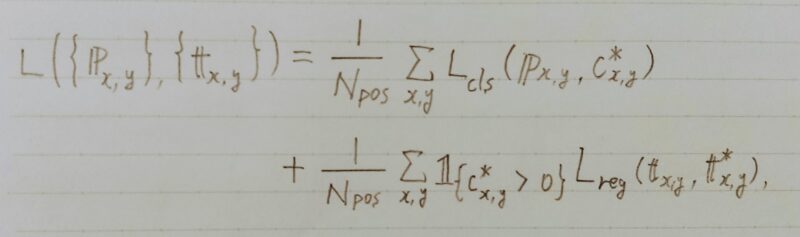 L({ℙ_{x,y}},{𝕥_{x,y}}) = \frac{1}{N_{pos}} \sum_{x,y} L_{cls}(ℙ_{x,y}, c^*_{x,y})
+ \frac{1}{N_{pos}} \sum_{x,y} 𝟙_{\{c^*_{x,y} > 0\}} L_{reg}(𝕥_{x,y}, 𝕥^*_{x,y}),